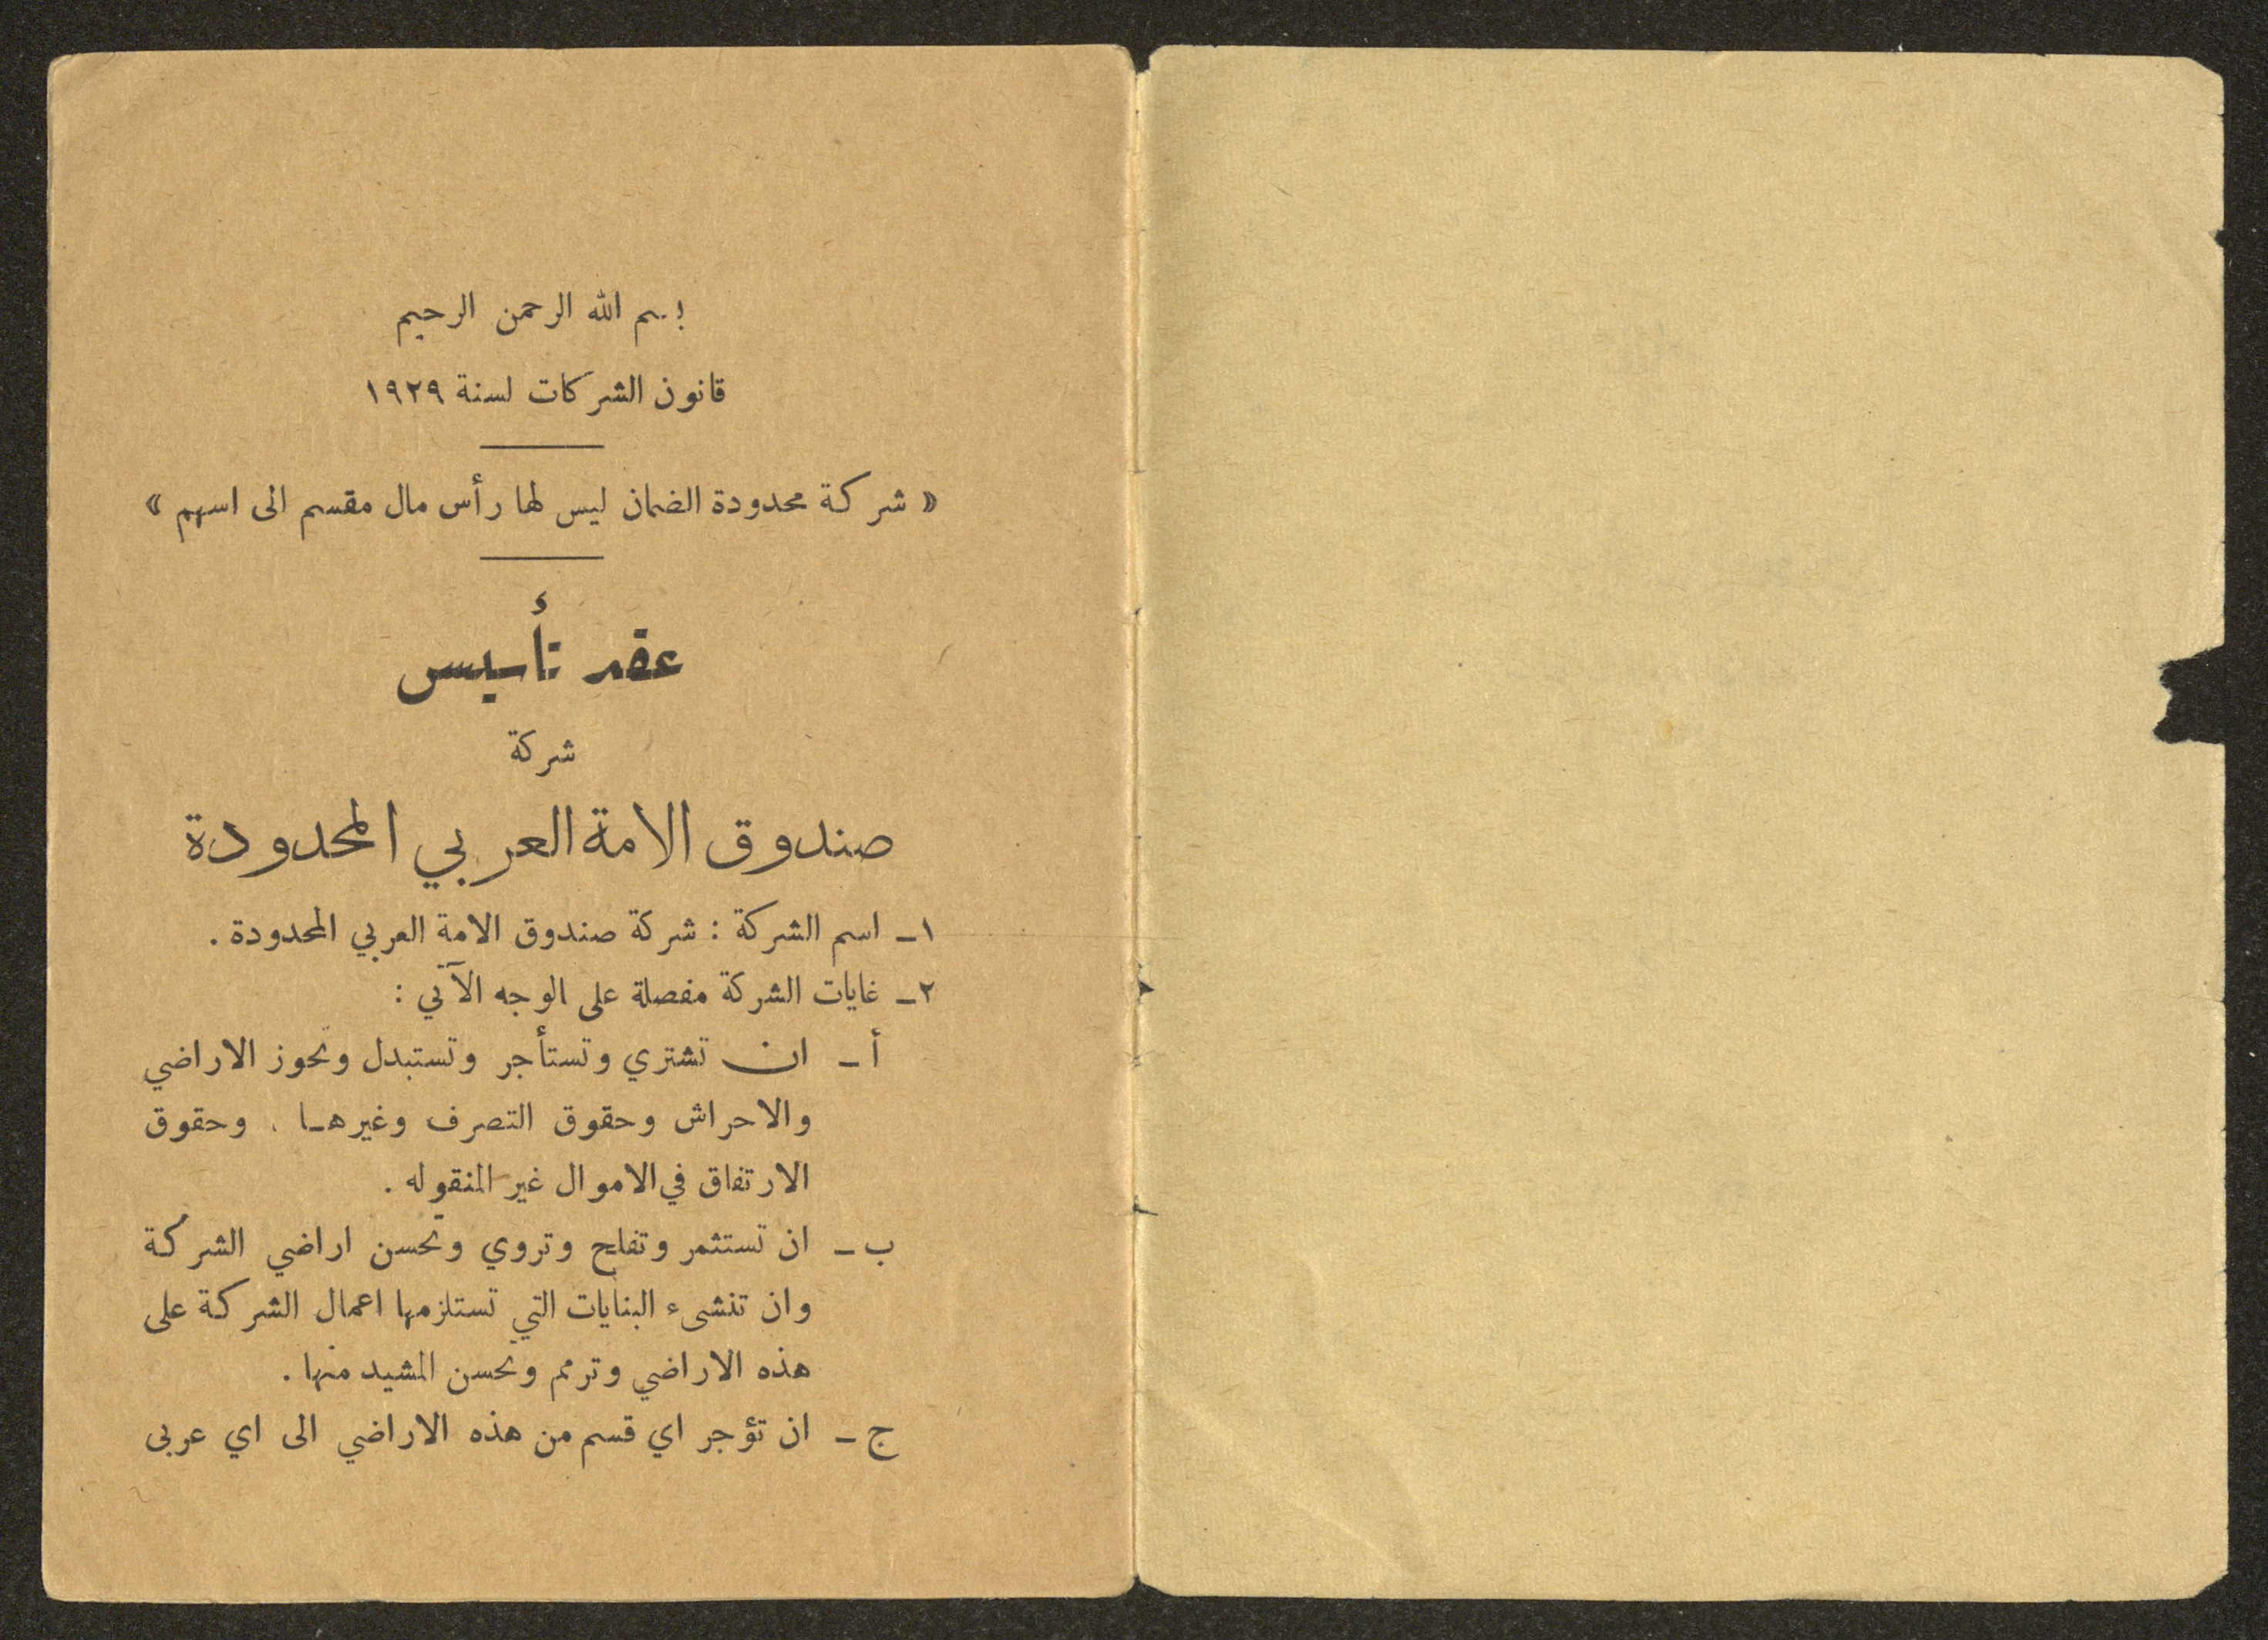 بسم الله الرحمن الرحيم
قانون الشركات لسنة ١٩٢٩
« شركة محدودة الضمان ليس لها رأس مال مقسم الى اسهم »
عقد تأسيس
شركة
صندوق الامة العربي المحدودة
١ـ اسم الشركة : شركة صندوق الامة العربي المحدودة .
٢ـ غايات الشركة مفصلة على الوجه الآتي :
أ ـ ان تشتري وتستأجر وتستبدل وتحوز الاراضي
والاحراش وحقوق التصرف وغيرها . وحقوق
الارتفاق في الاموال غير المنقوله .
ب ـ ان تستثمر وتفلح وتروي وتحسن اراضي الشركة
وان تنشىء البنايات التي تستلزمها اعمال الشركة على
هذه الاراضي وترمم وتحسن المشيد منها .
ج ـ ان تؤجر اي قسم من هذه الاراضي الى اي عربى